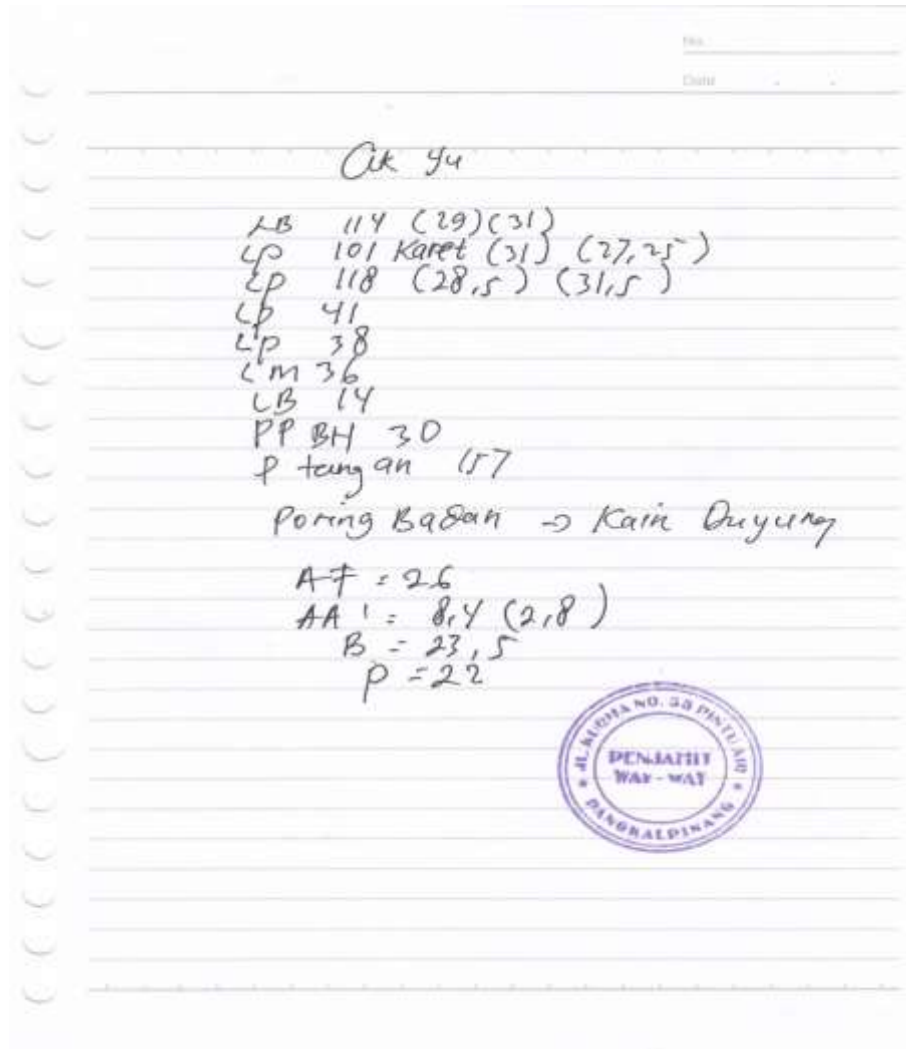 No.
Date
Cik Yu
LB 114 (29)(31)
LP 101 Karet (31) (27,25)
LP 118 (28,5) (31,5)
Lp 41
Lp 38
LM 36
LB 14
PP BH 30
P tangan 157
Poring Badan → Kain Duyung
A-F = 26
AA' = 8,4 (2,8)
B = 23,5
P = 22
JL. KURMA NO. 35 PINTU AIR
PENJAHIT
WAY - WAY
PANGKALPINANG